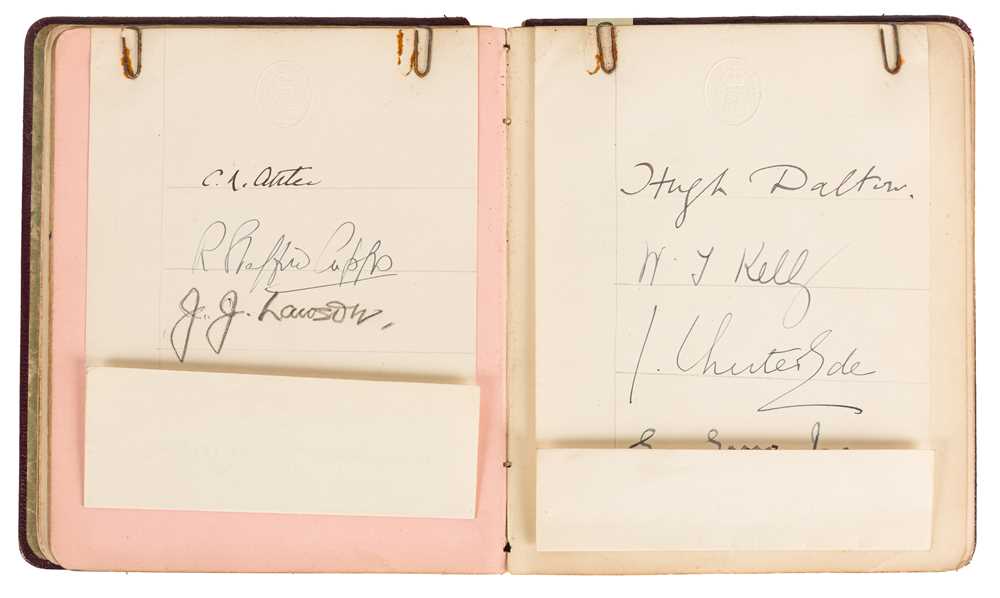 C. R. Attlee
R Stafford Cripps
J. J. Lawson.
Hugh Dalton.
W T Kelly
J. Chuter Ede